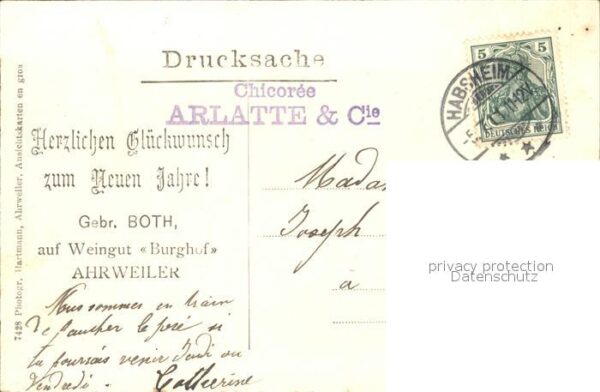 Drucksache
Chicorée
ARLATTE & Cie
Herzlichen Glückwunsch
zum Neuen Jahre!
Gebr. BOTH,
auf Weingut «Burghof»
AHRWEILER
Nous sommes en train
de faucher le pré si
tu pourrais venir Jeudi ou
Vendredi.
Catherine
Mada
Joseph
a
5 5
HABSHEIM
DEUTSCHES REICH
7428 Photogr. Hartmann, Ahrweiler, Ansichtskarten en gros
privacy protection
Datenschutz